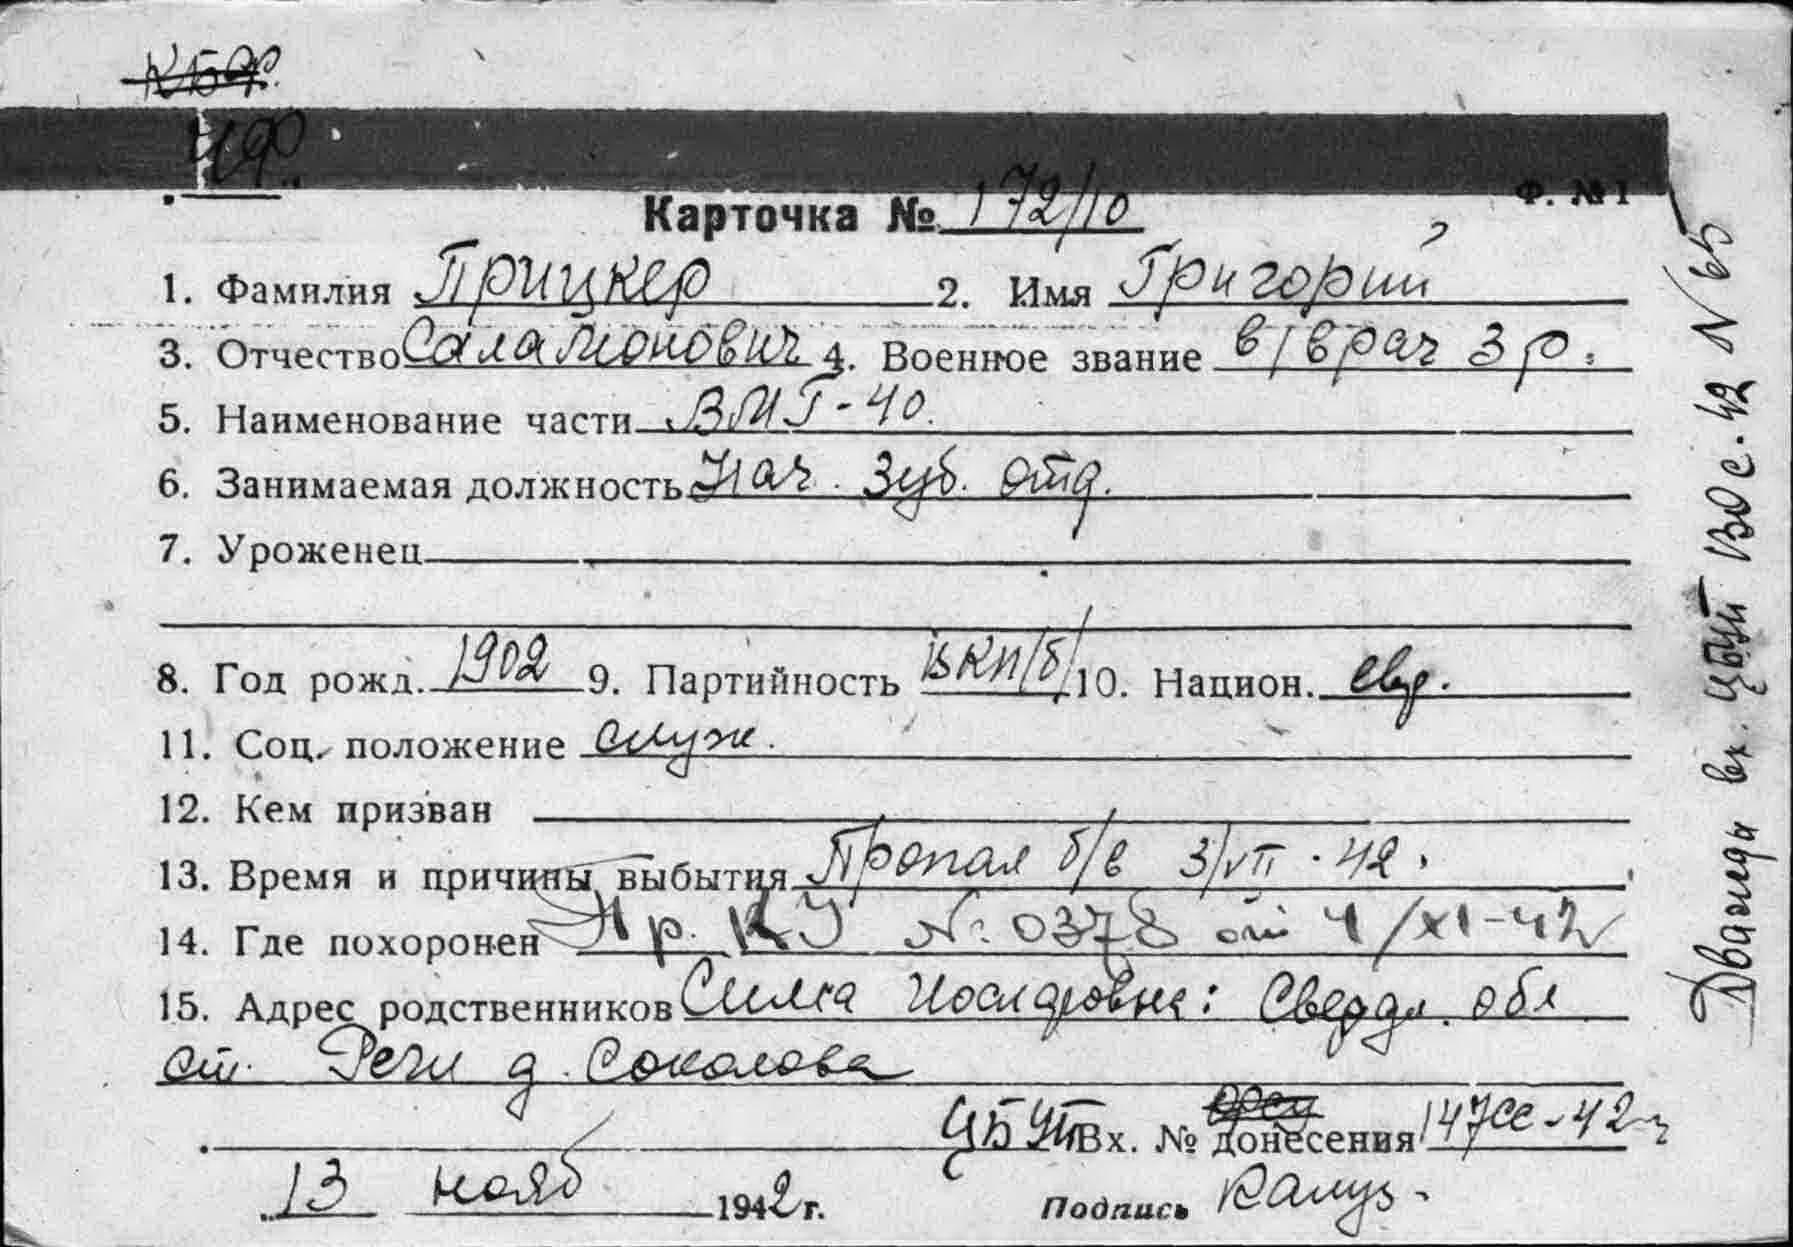 КБФ.
ЧФ
Ф. №1
Карточка № 172/10
1. Фамилия Прицкер 2. Имя Григорий
3. Отчество Саламонович 4. Военное звание в/врач 3 р.
5. Наименование части ВМГ-40.
6. Занимаемая должность Нач. Зуб. отд.
7. Уроженец
8. Год рожд. 1902 9. Партийность ВКП/б/ 10. Национ. евр.
11. Соц. положение служ.
12. Кем призван
13. Время и причины выбытия Пропал б/в 3/VII-42.
14. Где похоронен Пр. КУ № 0378 от 4/XI-42
15. Адрес родственников Сима : Свердл. обл
ст. Речи д. Соколова
ЦБУП Вх. № донесения 147сс-42г
13 нояб 1942 г. Подпись
Дважды вх. ЦБУП 130с.42 N 65